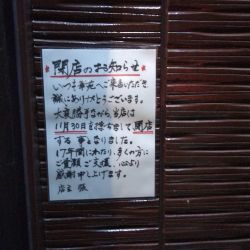 閉店のお知らせ
いつも華苑へご来店いただき
誠にありがとうございます。
大変勝手ながら、当店は
11月30日を持ちまして、閉店
する事となりました。
17年間にわたり、多くの方に
ご愛顧ご支援、心より
感謝申し上げます。
店主 張